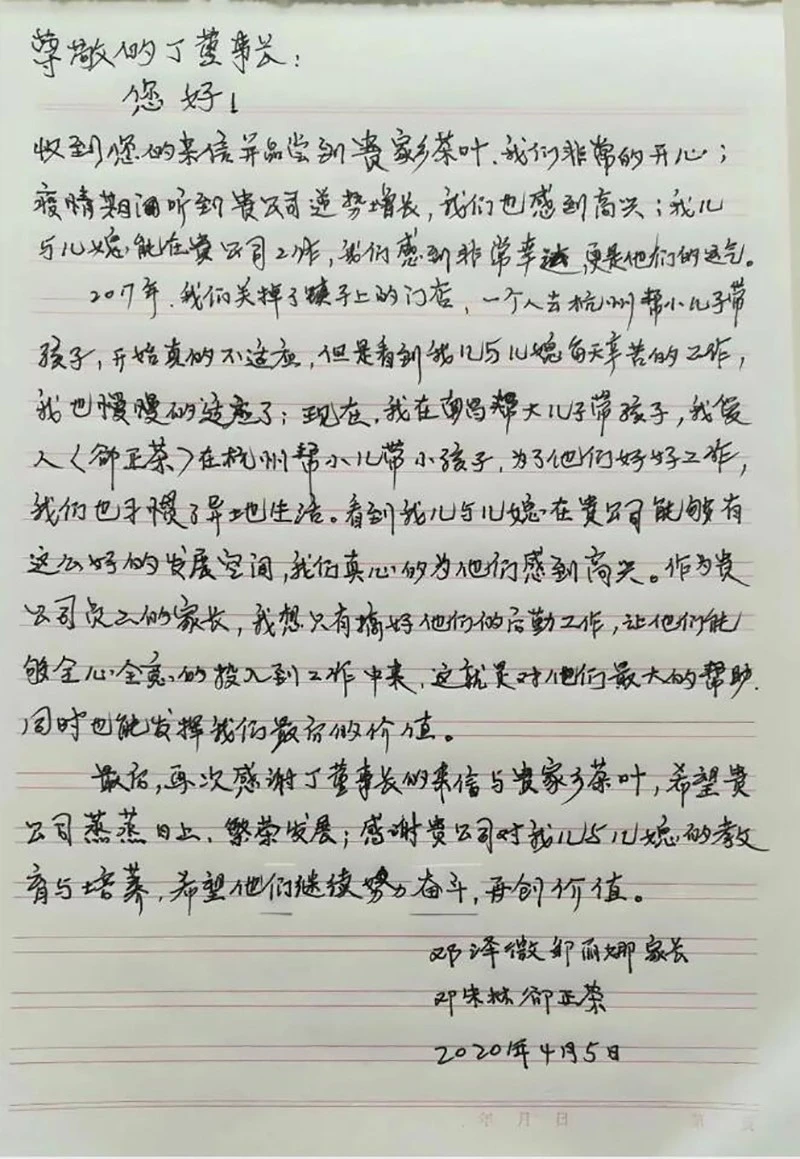 尊敬的丁董事长:
您好!
收到您的来信并品尝到贵家乡茶叶,我们非常的开心;
疫情期间听到贵公司逆势增长,我们也感到高兴;我儿
与儿媳能在贵公司工作,我们感到非常幸运,更是他们的运气。
2017年,我们关掉了镇子上的门店,一个人去杭州帮小儿子带
孩子,开始真的不适应,但是看到我儿与儿媳每天辛苦的工作,
我也慢慢的适应了;现在,我在南昌帮大儿子带孩子,我爱
人〈邹正荣〉在杭州帮小儿带小孩子,为了他们好好工作,
我们也习惯了异地生活。看到我儿与儿媳在贵公司能够有
这么好的发展空间,我们真心的为他们感到高兴。作为贵
公司员工的家长,我想只有搞好他们的后勤工作,让他们能
够全心全意的投入到工作中来,这就是对他们最大的帮助.
同时也能发挥我们最后的价值。
最后,再次感谢丁董事长的来信与贵家乡茶叶,希望贵
公司蒸蒸日上、繁荣发展;感谢贵公司对我儿与儿媳的教
育与培养,希望他们继续努力奋斗,再创价值。
邓泽微 邹丽娜家长
邓宋林 邹正荣
2020年4月5日
年 月 日 第 页